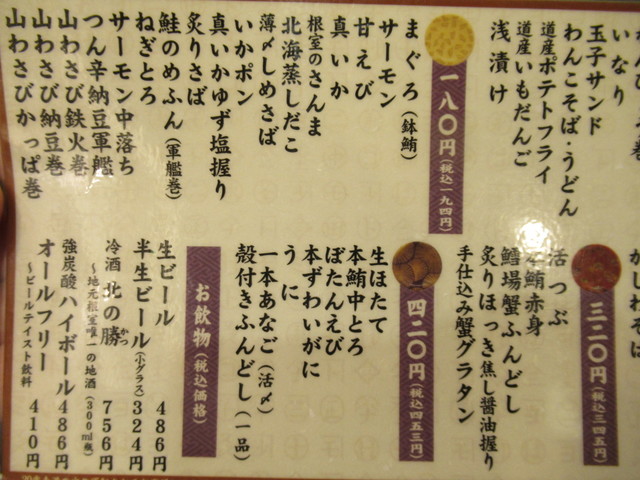 いなり
玉子サンド
わんこそば・うどん
道産ポテトフライ
道産いもだんご
浅漬け
一八〇円(税込一九四円)
まぐろ(鉢鮪)
サーモン
甘えび
真いか
根室のさんま
北海蒸しだこ
薄〆しめさば
いかポン
真いかゆず塩握り
炙りさば
鮭のめふん(軍艦巻)
ねぎとろ
サーモン中落ち
つん辛納豆軍艦
山わさび鉄火巻
山わさび納豆巻
山わさびかっぱ巻
三二〇円(税込三四五円)
活つぶ
本鮪赤身
鱈場蟹ふんどし
炙りほっき焦し醤油握り
手仕込み蟹グラタン
四二〇円(税込四五三円)
生ほたて
本鮪中とろ
ぼたんえび
本ずわいがに
うに
一本あなご(活〆)
殻付きふんどし(一品)
お飲物(税込価格)
生ビール 486円
半生ビール(小グラス) 324円
冷酒 北の勝 かつ 756円
～地元根室唯一の地酒(300ml瓶)
強炭酸ハイボール 486円
オールフリー 410円
～ビールテイスト飲料